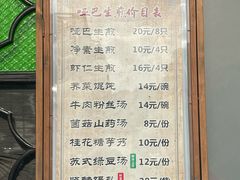 哑巴生煎价目表
哑巴生煎 20元/8只
净素生煎 10元/4只
虾仁生煎 16元/4只
荠菜馄饨 14元/碗
牛肉粉丝汤 14元/碗
菌菇山药汤 8元/份
桂花糖芋艿 10元/份
苏式绿豆汤 12元/份